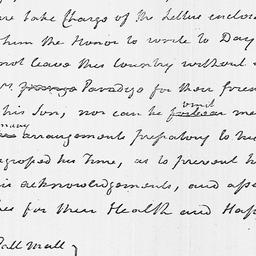 take Charge of the Letter enclos
him the Honor to write to Day
not leave this Country without
M. Paradise for their frien
his Son, nor can he omit me
many
arrangements preparatory to hi
grossed his Time, as to prevent h
is acknowledgements, and ass
es for their Health and Hap
Pall Mall